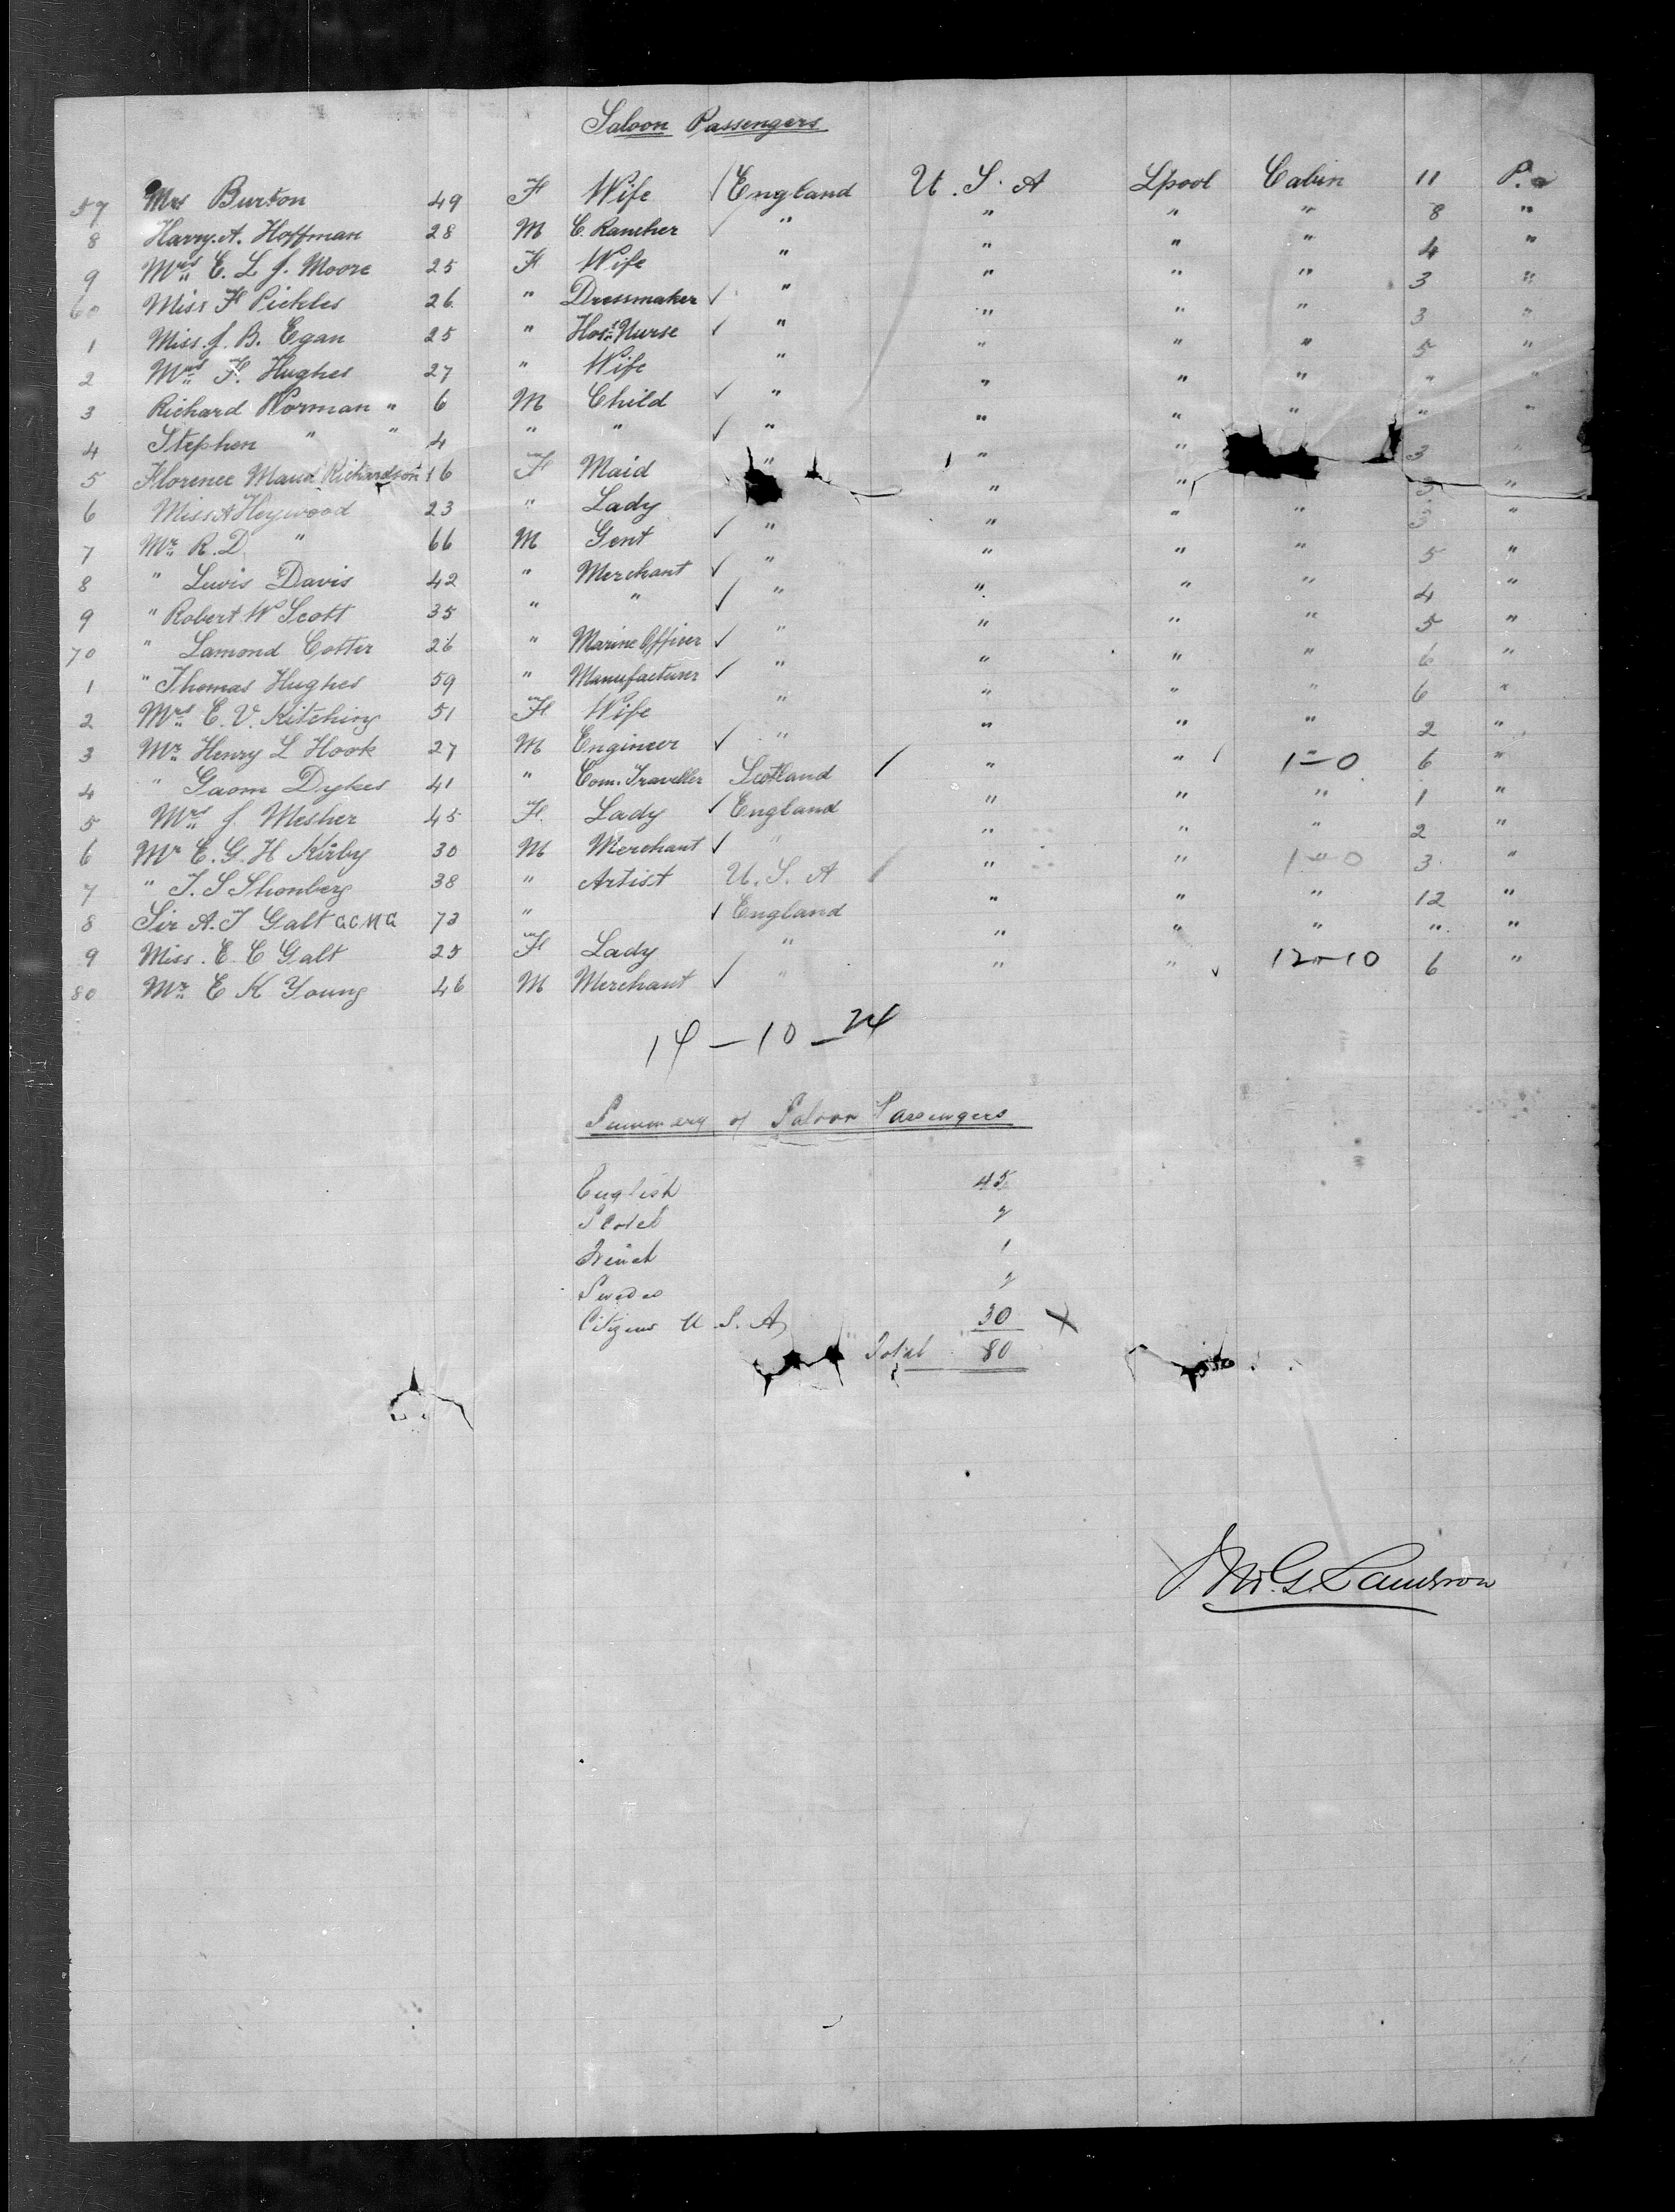 Saloon Passengers
57 Mrs Burton 49 F Wife England U.S.A L'pool Cabin 11 P.
8 Harry. A. Hoffman 28 M C. Rancher " " " " 8 "
9 Mrs E. L. J. Moore 25 F Wife " " " " 4 "
60 Miss F Pickles 26 " Dressmaker " " " " 3 "
1 Miss. J. B. Egan 25 " Hos. Nurse " " " " 3 "
2 Mrs F. Hughes 27 " Wife " " " " 5 "
3 Richard Norman " 6 M Child " " " " " "
4 Stephen " " 4 " " " " " " " "
5 Florence Maud Richardson 16 F Maid " " " 3 "
6 Miss A Heywood 23 " Lady " " 3 "
7 Mr R. D. " 66 M Gent " " " " 3 "
8 " Lewis Davis 42 " Merchant " " " " 5 "
9 " Robert W Scott 35 " " " " " " 4 "
70 " Lamond Cotter 26 " Marine Officer " " " " 5 "
1 " Thomas Hughes 59 " Manufacturer " " " " 6 "
2 Mrs E. V. Kitching 51 F Wife " " " " 6 "
3 Mr Henry L Hook 27 M Engineer " " " " 2 "
4 " Gaom Dykes 41 " Com. Traveller Scotland " " 1-0 6 "
5 Mrs J. Mesher 45 F. Lady England " " " 1 "
6 Mr E. G. H Kirby 30 M Merchant " " " " 2 "
7 " T. S Shonberg 38 " Artist U. S. A " " 1-0 3 "
8 Sir A. T Galt G C M G 73 " England " " " 12 "
9 Miss. E. C Galt 25 F Lady " " " " " "
80 Mr E K Young 46 M Merchant " " " 12-10 6 "
14 - 10 - 24
Summary of Saloon Passengers
English 45
Scotch 2
French 1
Swedes 2
Citizens U. S. A 30 X
Total 80